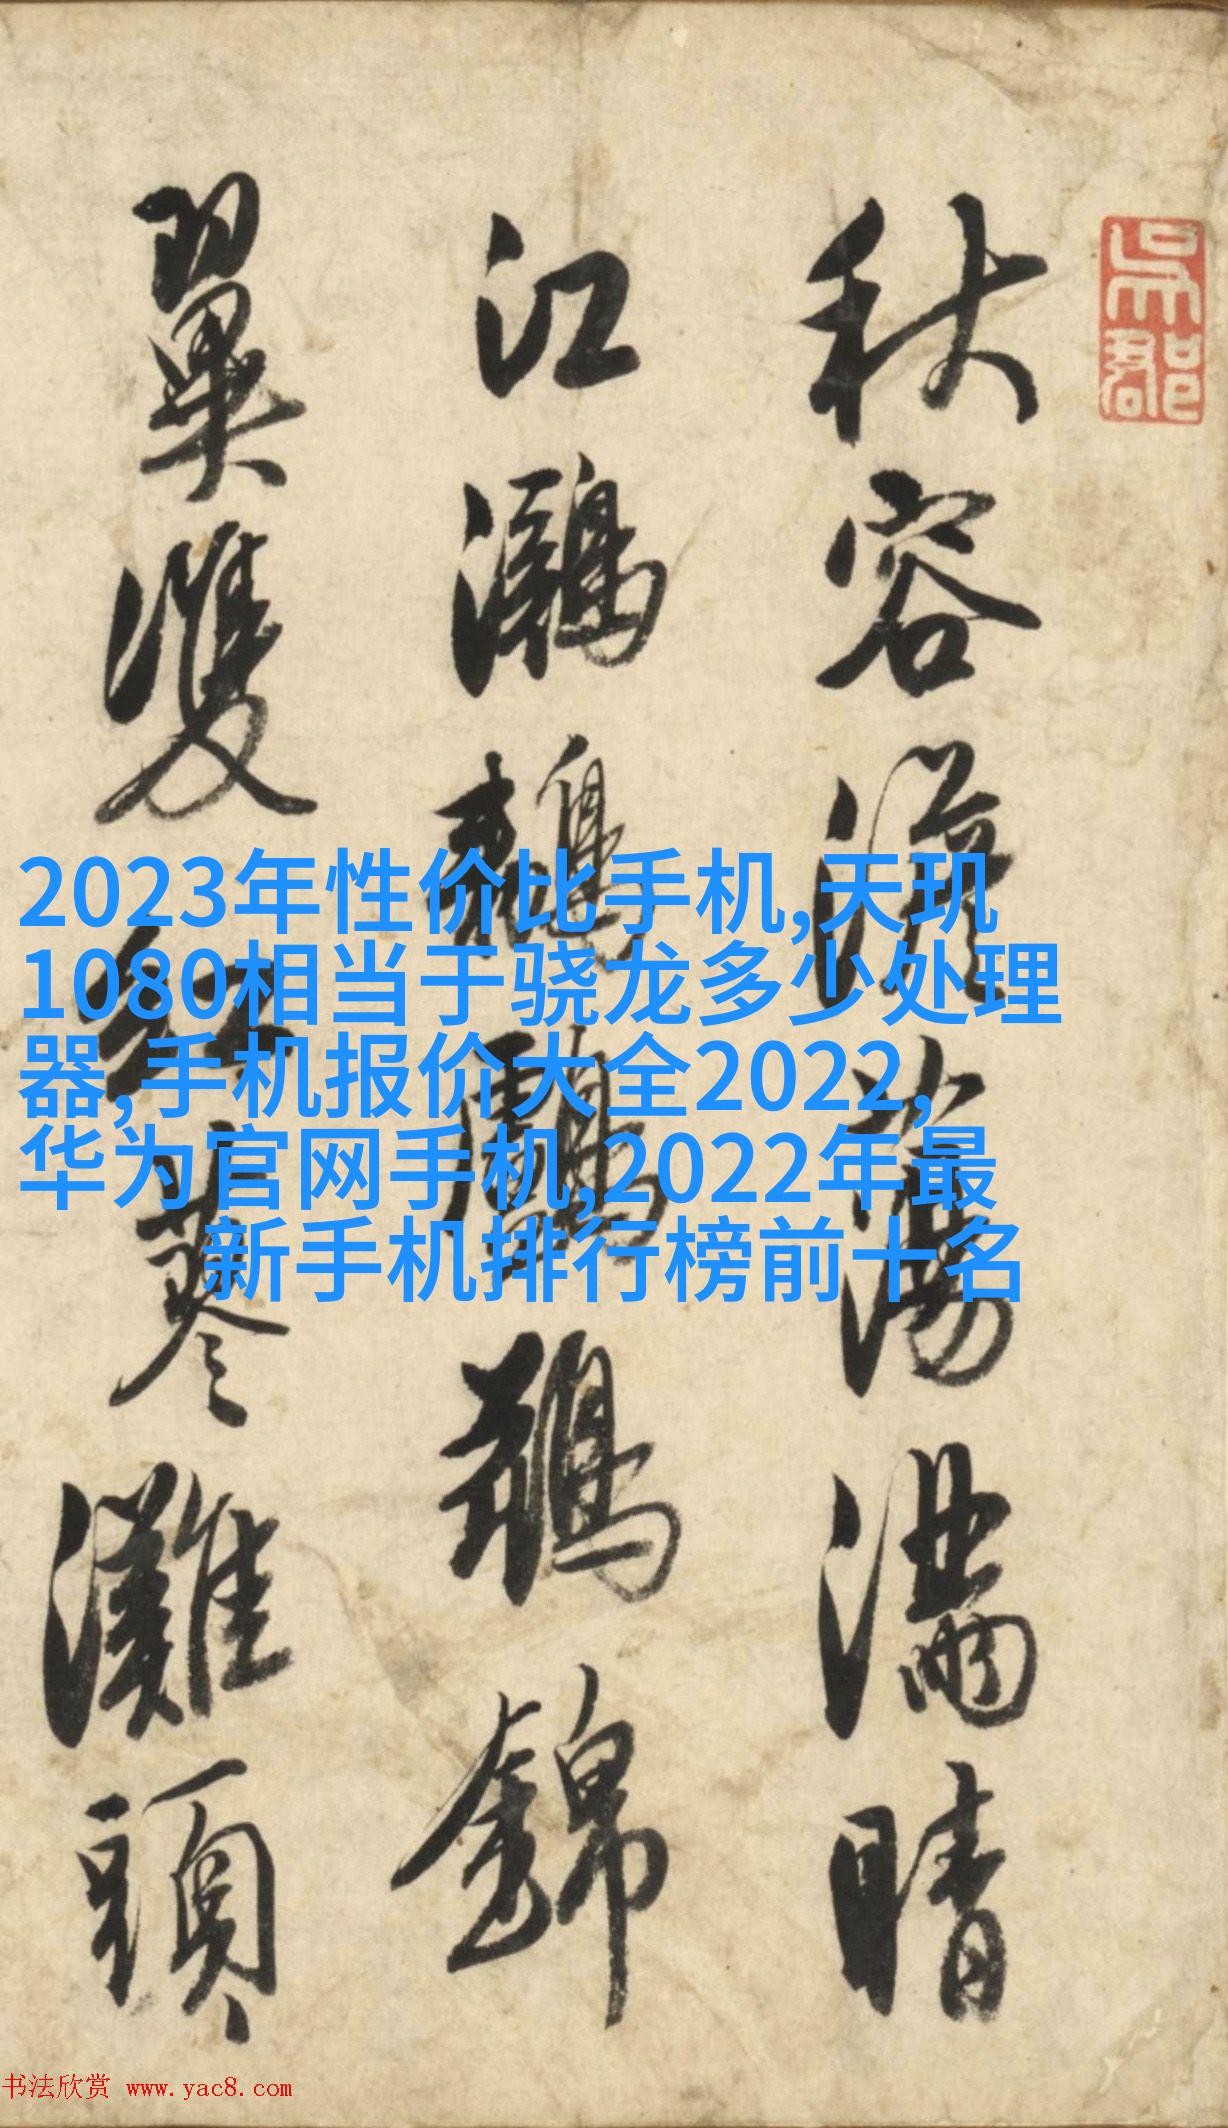 吳郡
秋容淡蕩滿晴
江鸂鶒鸕鶿錦
翼雙紅蓼灘頭
2023年性价比手机,天玑
1080相当于骁龙多少处理
器,手机报价大全2022,
华为官网手机,2022年最
新手机排行榜前十名
书法欣赏 www.yac8.com